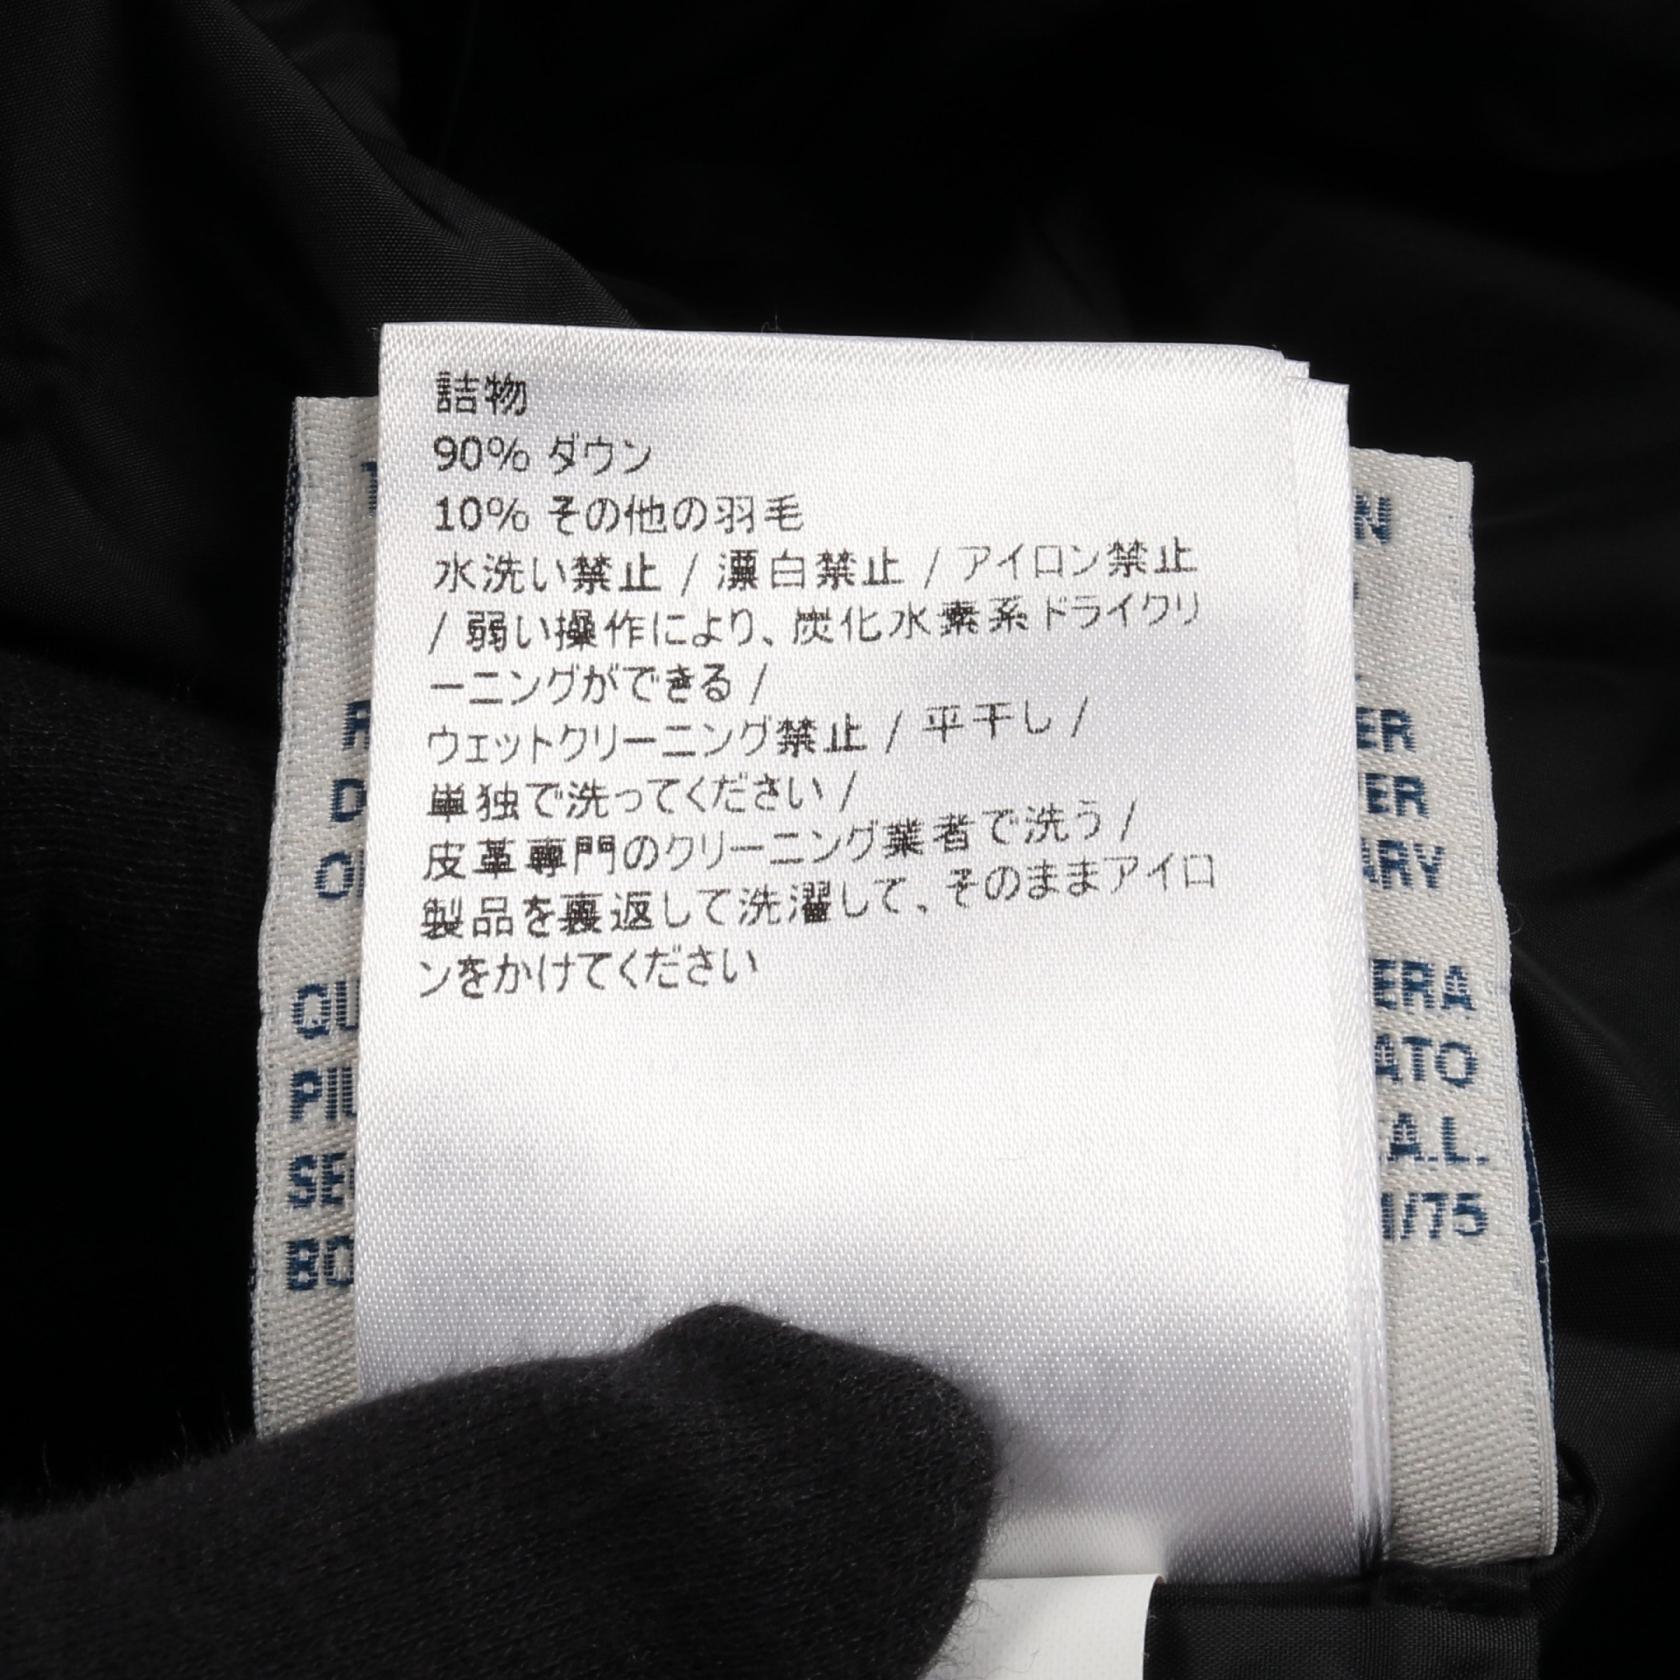 詰物
90% ダウン
10% その他の羽毛
水洗い禁止 / 漂白禁止 / アイロン禁止
/ 弱い操作により、炭化水素系ドライクリ
ーニングができる /
ウェットクリーニング禁止 / 平干し /
単独で洗ってください /
皮革専門のクリーニング業者で洗う /
製品を裏返して洗濯して、そのままアイロ
ンをかけてください
N
ER
ER
ARY
QU
ERA
PIU
ATO
SE
A.L.
BO
1/75